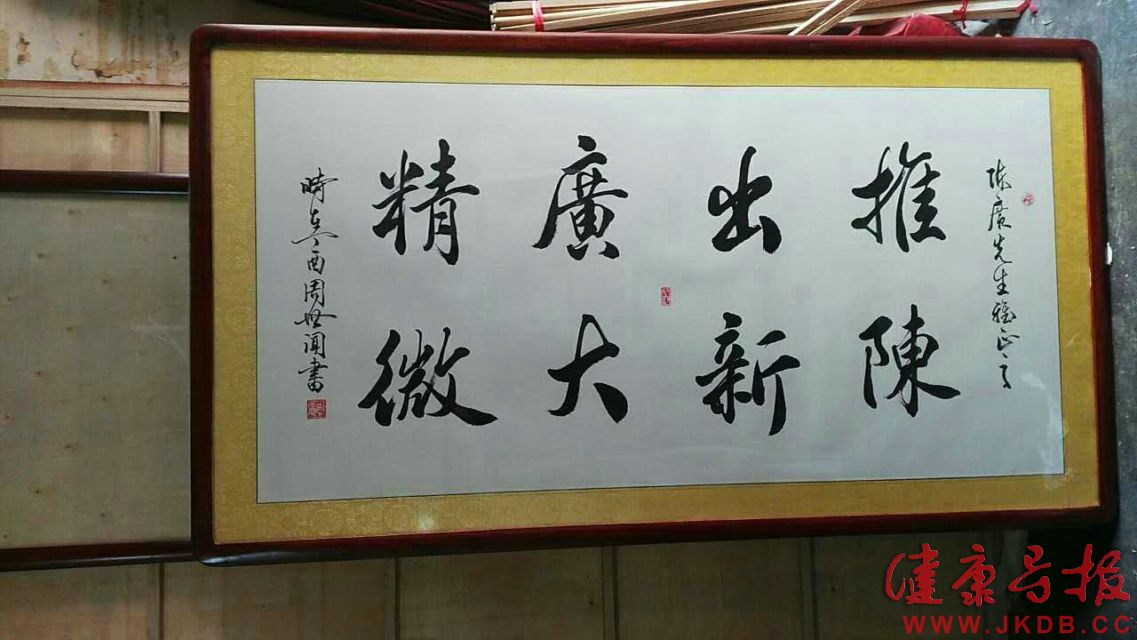 陳廣先生雅正之
推陳
出新
廣大
精微
時在癸酉周世闻書
健康号报
WWW.JKDB.CC